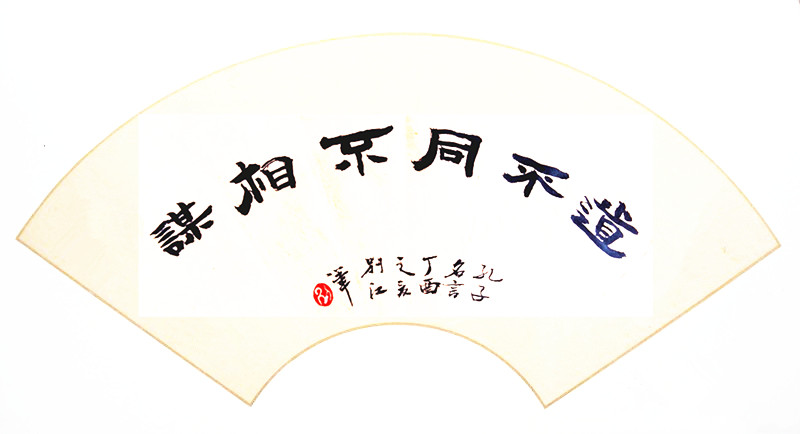 道不同不相謀
孔子
名言
丁酉
之
别江